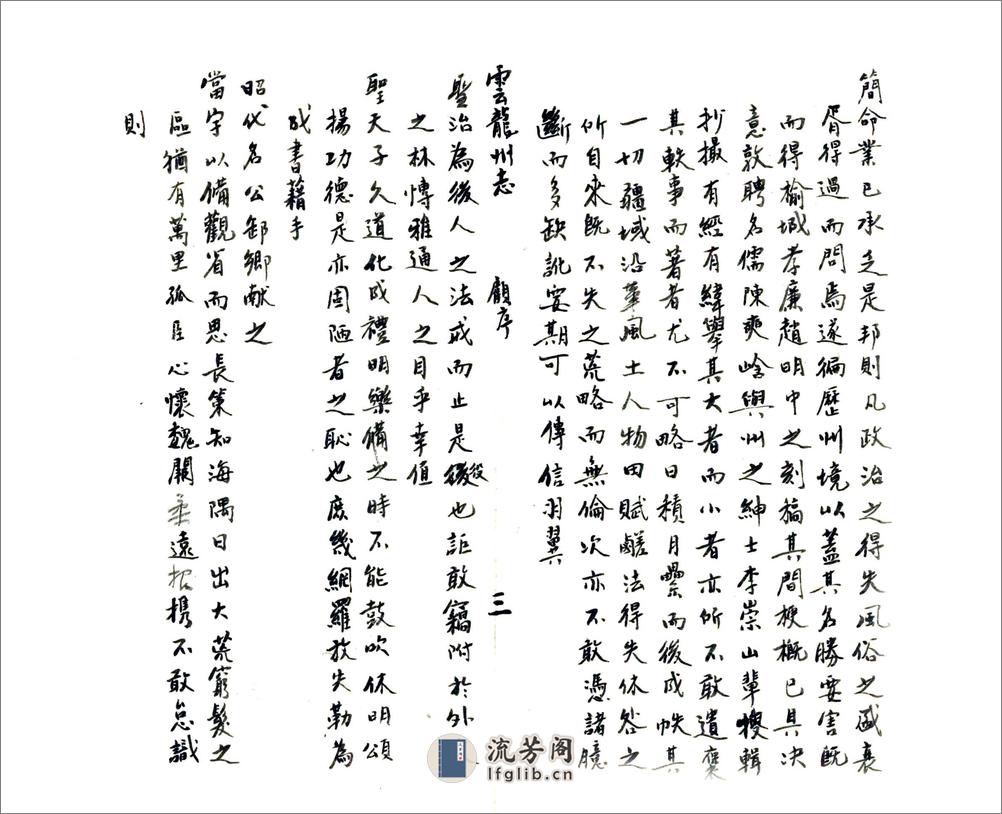 簡命業已承乏是邦則凡政治之得失風俗之盛衰
胥得過而問焉遂徧歷州境以蓋其名勝要害既
而得榆城孝廉趙明中之刻稿其間梗概已具決
意敦聘名儒陳奭崯與州之紳士李崇山輩搜輯
抄撮有經有緯舉其大者而小者亦所不敢遺裒
其軼事而著者尤不可略日積月纍而後成帙其
一切疆域沿革風土人物田賦鹺法得失休咎之
所自來既不失之荒略而無倫次亦不敢憑諸臆
斷而多缺訛要期可以傳信羽翼
雲龍州志 顧序 三
聖治為後人之法戒而止是役也詎敢竊附於外
之林博雅通人之目乎幸值
聖天子久道化成禮明樂備之時不能鼓吹休明頌
揚功德是亦固陋者之恥也庶幾網羅放失勒為
成書藉手
昭代名公鉅卿献之
當宁以備觀省而思長策知海隅日出大荒窮髮之
區猶有萬里孤臣心懷魏闕柔遠招携不敢怠識
則
流芳阁
lfglib.cn